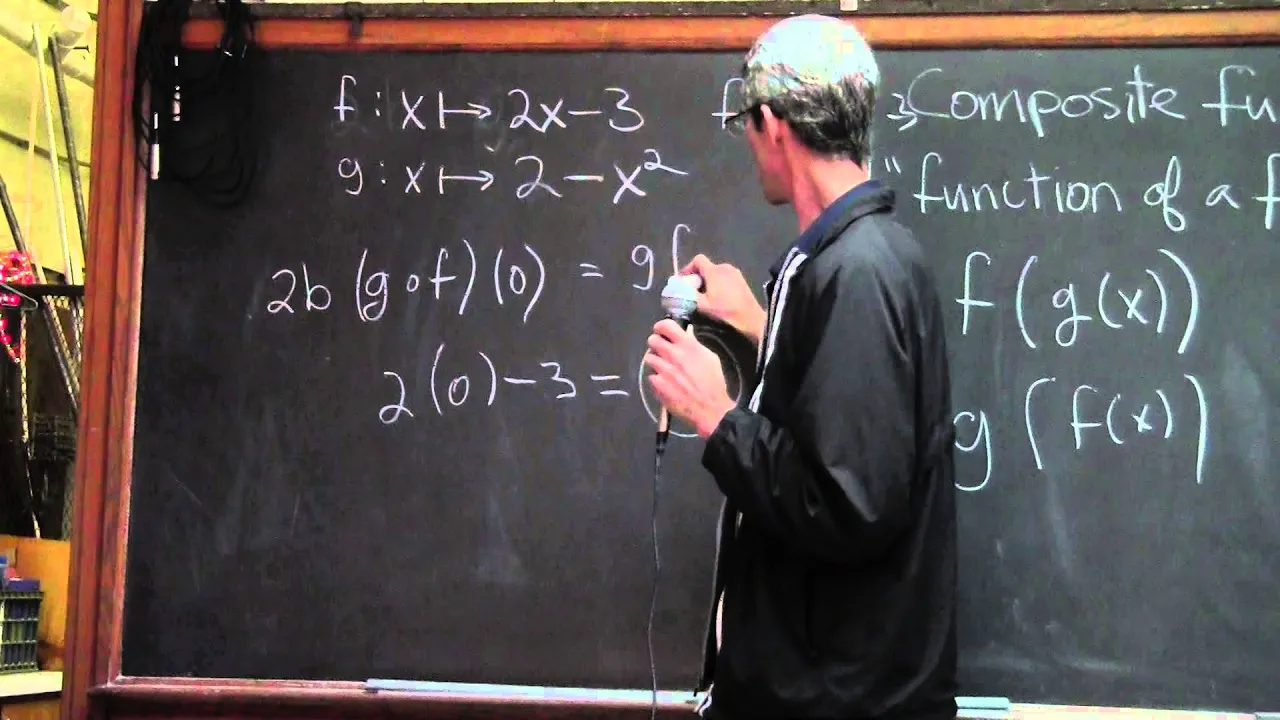 f : x ↦ 2x - 3
g : x ↦ 2 - x²
2b (g∘f)(0) = gf
2(0) - 3 =
Composite
"function of a
f(g(x))
g(f(x))